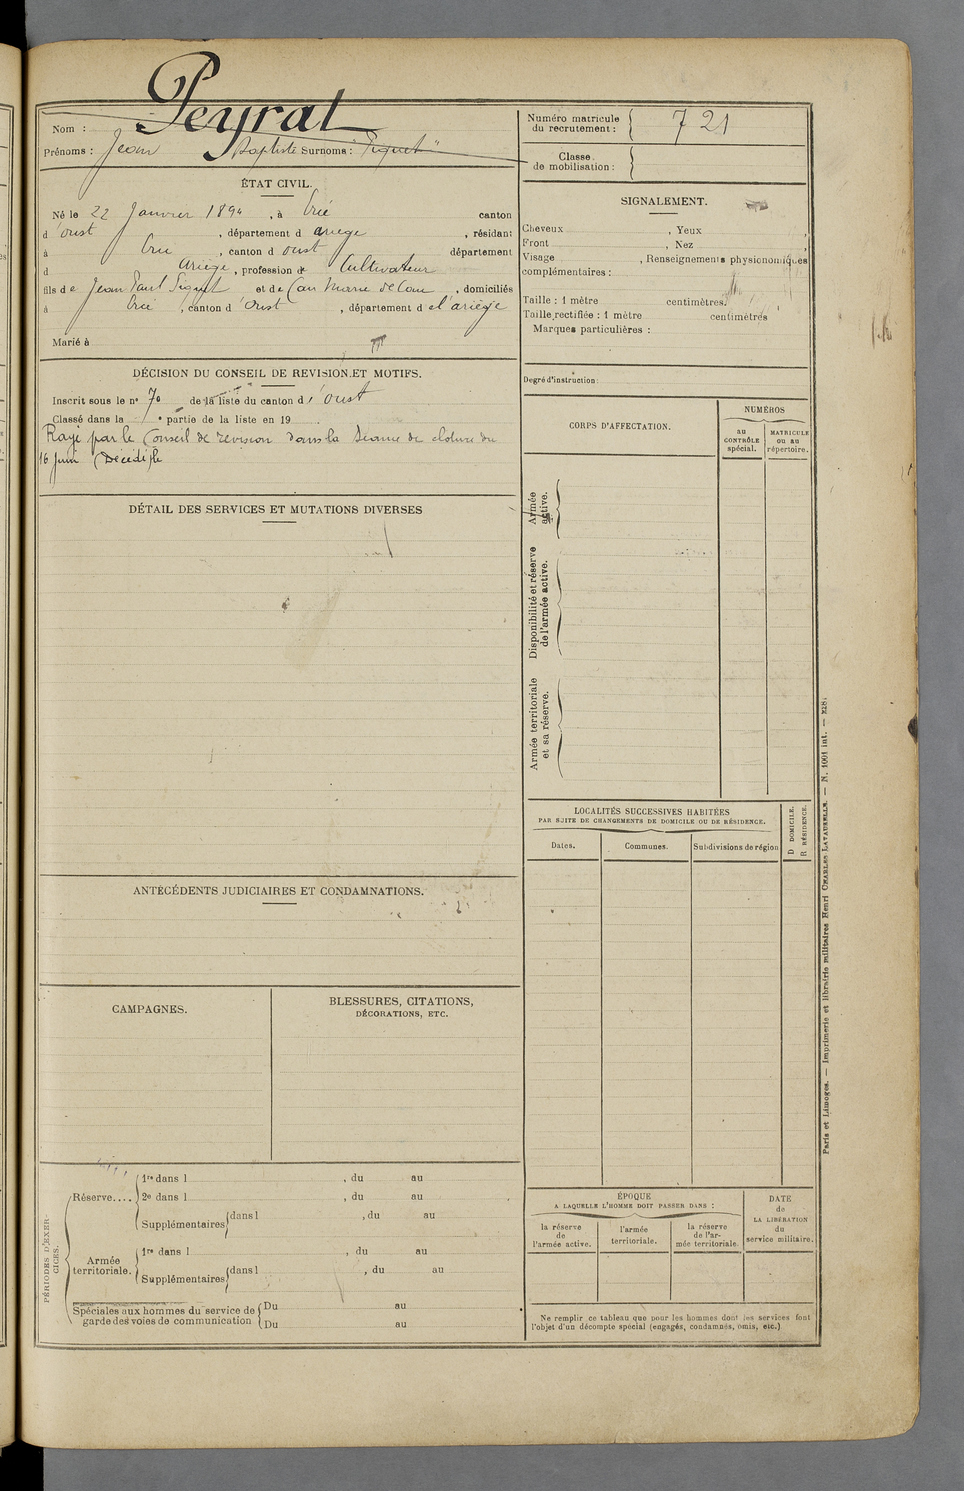 Peyrat
Nom :
Prénoms : Jean Baptiste Surnoms : "Piquet"
Numéro matricule du recrutement : 721
Classe de mobilisation :
ÉTAT CIVIL.
Né le 22 Janvier 1894, à Ercé canton
d'oust, département d ariege, résidant
à Ercé, canton d oust département
d Ariège, profession de Cultivateur
fils de Jean Paul et de Marie, domiciliés
à Ercé, canton d'Oust, département de l'ariège
Marié à
DÉCISION DU CONSEIL DE REVISION ET MOTIFS.
Inscrit sous le n° 70 de la liste du canton d'oust
Classé dans la e partie de la liste en 19
Rayé par le Conseil de revision dans la Séance de cloture du
16 Juin (Décédé) le
DÉTAIL DES SERVICES ET MUTATIONS DIVERSES
ANTÉCÉDENTS JUDICIAIRES ET CONDAMNATIONS.
CAMPAGNES.
BLESSURES, CITATIONS,
DÉCORATIONS, ETC.
PÉRIODES D'EXERCICES.
Réserve....
1re dans l , du au
2e dans l , du au
Supplémentaires dans l , du au
Armée territoriale.
1re dans l , du au
Supplémentaires dans l , du au
Spéciales aux hommes du service de garde des voies de communication
Du au
Du au
SIGNALEMENT.
Cheveux , Yeux ,
Front , Nez ,
Visage , Renseignements physionomiques
complémentaires :
Taille : 1 mètre centimètres.
Taille rectifiée : 1 mètre centimètres
Marques particulières :
Degré d'instruction :
CORPS D'AFFECTATION.
NUMÉROS
au CONTRÔLE spécial.
MATRICULE ou au répertoire.
Armée active.
Disponibilité et réserve de l'armée active.
Armée territoriale et sa réserve.
LOCALITÉS SUCCESSIVES HABITÉES
PAR SUITE DE CHANGEMENTS DE DOMICILE OU DE RÉSIDENCE.
Dates.
Communes.
Subdivisions de région
D DOMICILE.
R RÉSIDENCE.
ÉPOQUE
A LAQUELLE L'HOMME DOIT PASSER DANS :
la réserve de l'armée active.
l'armée territoriale.
la réserve de l'armée territoriale.
DATE de LA LIBÉRATION du service militaire.
Ne remplir ce tableau que pour les hommes dont les services font
l'objet d'un décompte spécial (engagés, condamnés, omis, etc.)
Paris et Limoges. — Imprimerie et librairie militaires Henri CHARLES-LAVAUZELLE. — N. 1001 int. —